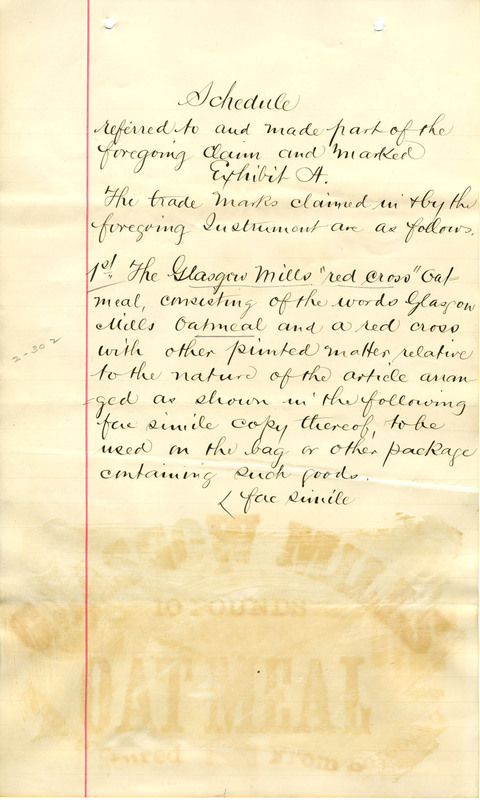 Schedule
referred to and made part of the
foregoing claim and marked
Exhibit A.
The trade marks claimed in & by the
foregoing Instrument are as follows.
1st. The Glasgow Mills "red cross" Oat-
meal, consisting of the words Glasgow
Mills Oatmeal and a red cross
with other printed matter relative
to the nature of the article arran-
ged as shown in the following
fac simile copy thereof, to be
used on the bag or other package
containing such goods.
fac simile
2-302
10 POUNDS
OATMEAL
From